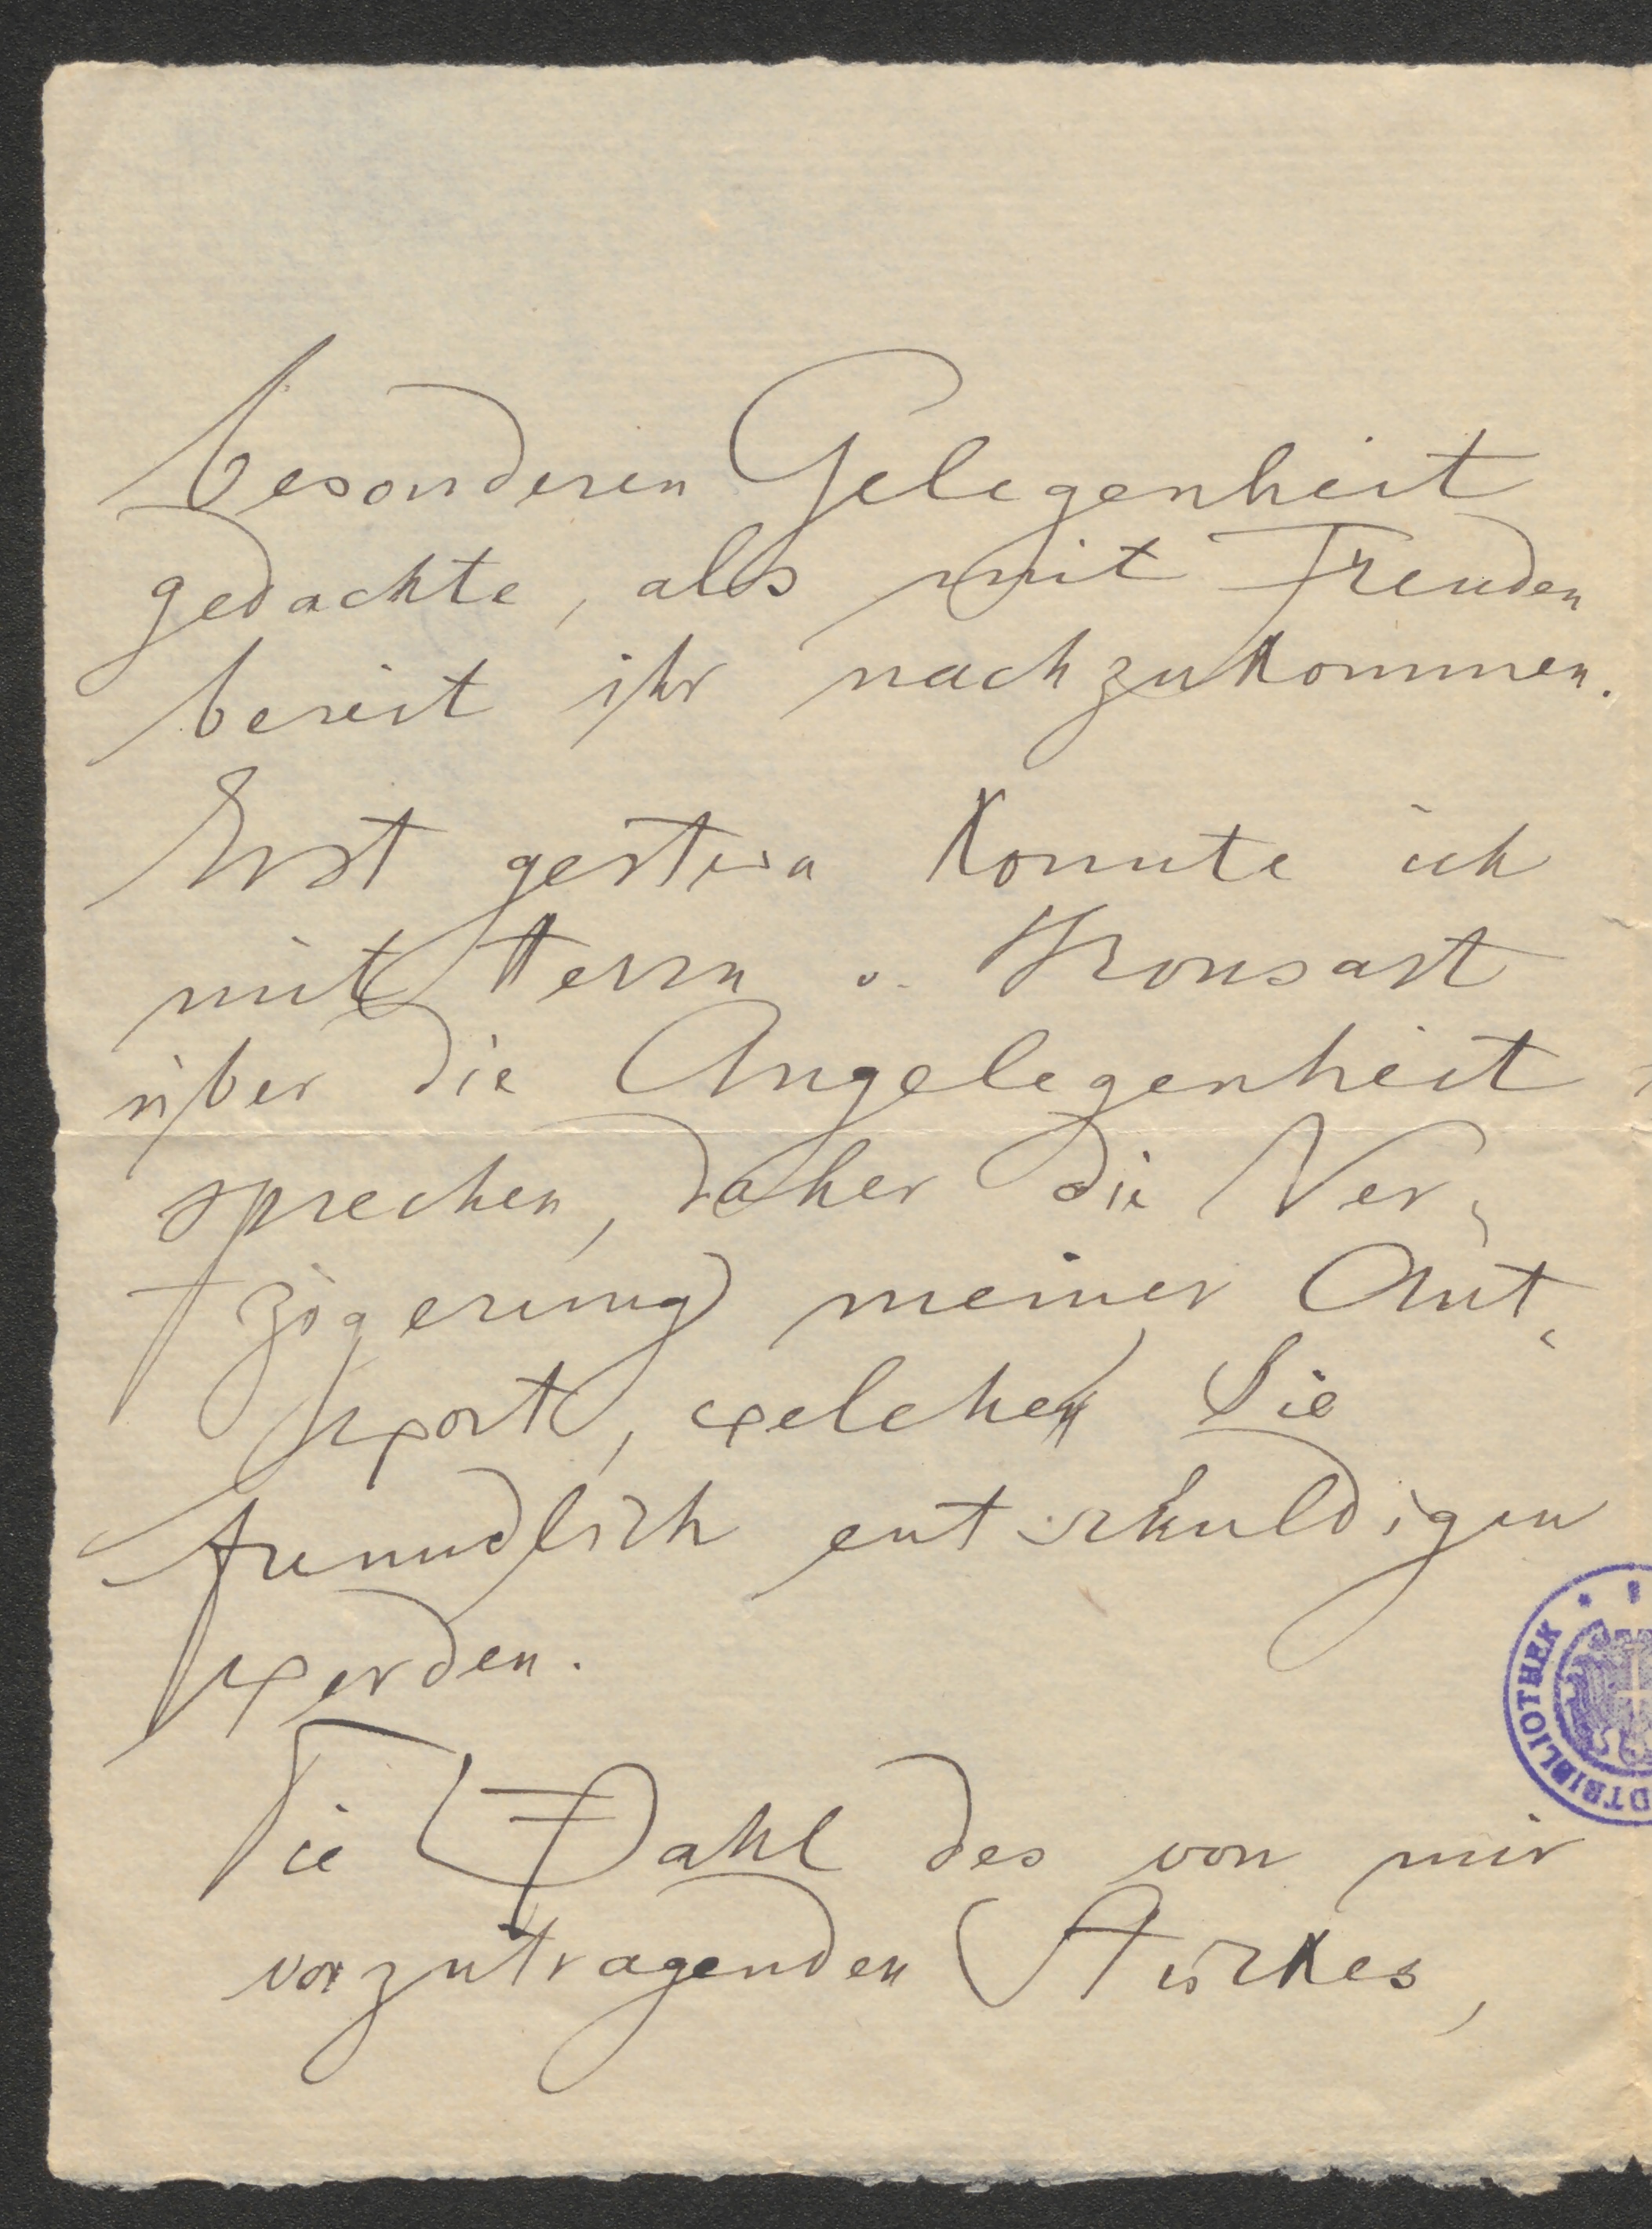 besonderen Gelegenheit
gedachte, als mit Freuden
bereit ihr nachzukommen.
Erst gestern konnte ich
mit Herrn v. Bronsart
über die Angelegenheit
sprechen, daher die Ver-
zögerung meiner Ant-
wort, welche Sie
freundlich entschuldigen
werden.
Die Wahl des von mir
vorzutragenden Stückes,
DTBIBLIOTHEK